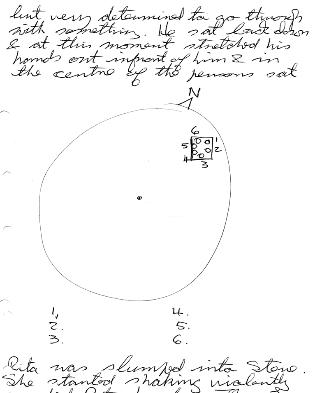 but very determined to go through
with something. He sat back down
& at this moment stretched his
hands out infront of him & in
the centre of the persons sat
N
6
1
5 2
4
3
1, 4.
2. 5.
3. 6.
Rita was slumped into Steve.
She started shaking violently